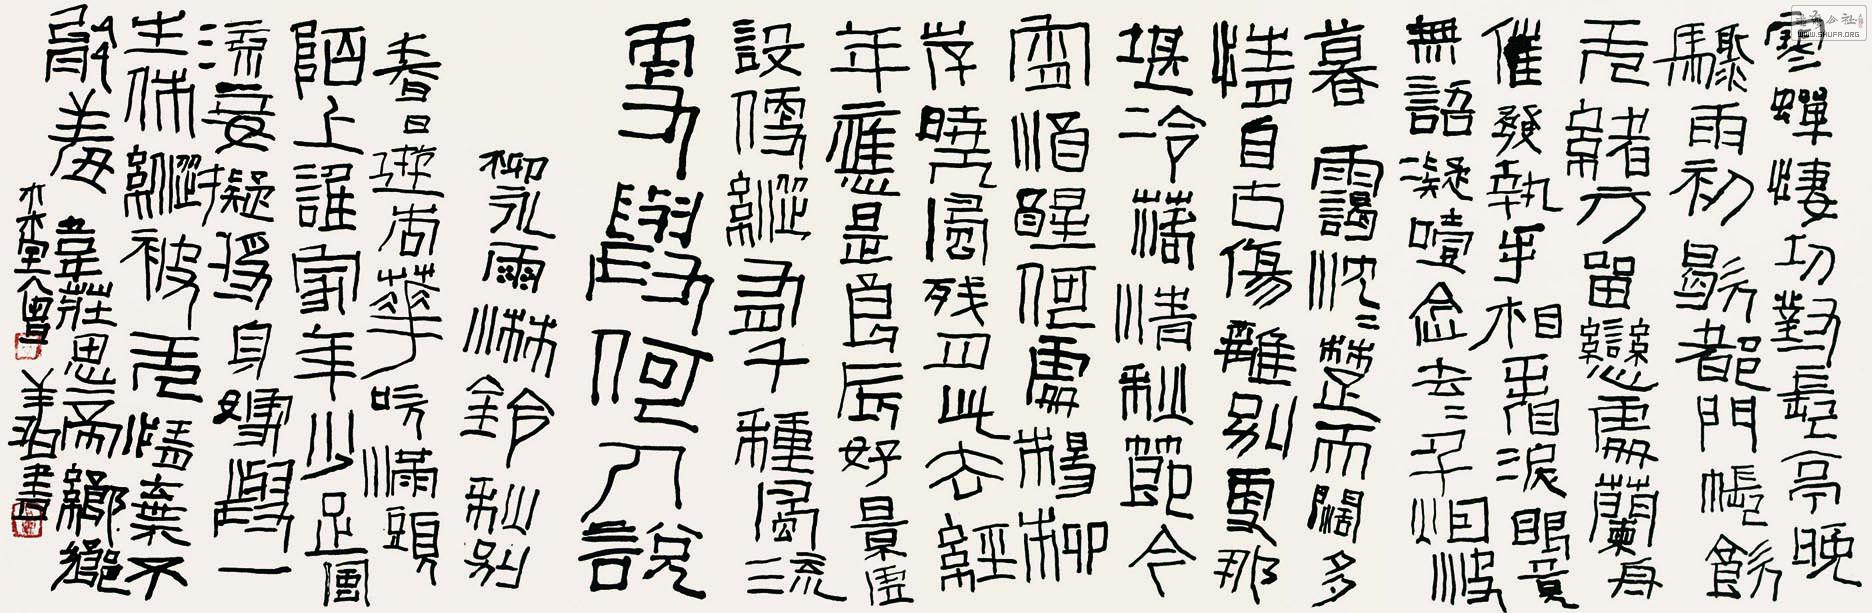 寒蟬凄切對長亭晚
驟雨初歇都門帳飲
无緒方留戀處蘭舟
催發執手相看淚眼竟
無語凝噎念去〻千里烟波
暮靄沈〻楚天闊多
情自古傷離別更那
堪冷落清秋節今
宵酒醒何處楊柳
岸曉風残月此去經
年應是良辰好景虛
設便縱有千種風流
更與何人說
柳永雨淋鈴秋別
春日遊杏花吹滿頭
陌上誰家年少足風
流妾擬將身嫁與一
生休縱被无情棄不
能羞
韋莊思帝鄉
WWW.SHUFA.ORG